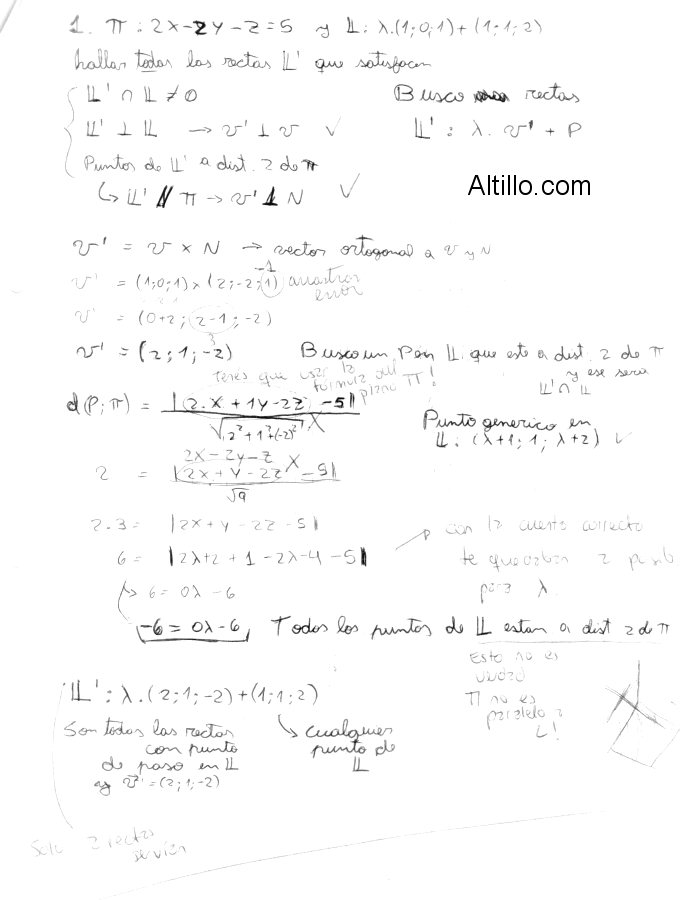 1. π : 2x-2y-z=5 y 𝕃: λ.(1;0;1)+(1;1;2)
hallar todas las rectas 𝕃' que satisfacen
𝕃' ∩ 𝕃 ≠ ∅
Busco rectas
𝕃' ⊥ 𝕃 → v' ⊥ v ✓
𝕃' : λ. v' + P
Puntos de 𝕃' a dist. 2 de π
Altillo.com
↳ 𝕃' // π → v' ⊥ N ✓
v' = v × N → vector ortogonal a v y N
-1
v' = (1;0;1)×(2;-2;1) arrastras error
v' = (0+2; 2-1; -2)
3
v' = (2;1;-2) Busco un P en 𝕃 que este a dist. 2 de π
y ese sera
𝕃' ∩ 𝕃
tenes que usar la
formula del
plano π!
d(P;π) = |2.x + 1y-2z -5|
√2²+1²+(-2)² X
Punto generico en
𝕃: (λ+1; 1; λ+2) ✓
2x-2y-z
2 = |2x + y - 2z X -5|
√9
2.3= |2x+y -2z -5|
6= |2λ+2 + 1 -2λ-4 -5|
con la cuenta correcta
te quedaban 2
para λ.
↳ 6= 0λ -6
-6 = 0λ-6, Todos los puntos de 𝕃 estan a dist 2 de π
Esto no es
verdad
π no es
paralelo a
L!
𝕃' : λ.(2;1;-2)+(1;1;2)
Son todas las rectas
con punto
de paso en 𝕃
y v'=(2;1;-2)
↳ cualquier
punto de
𝕃
Solo 2 rectas
servían